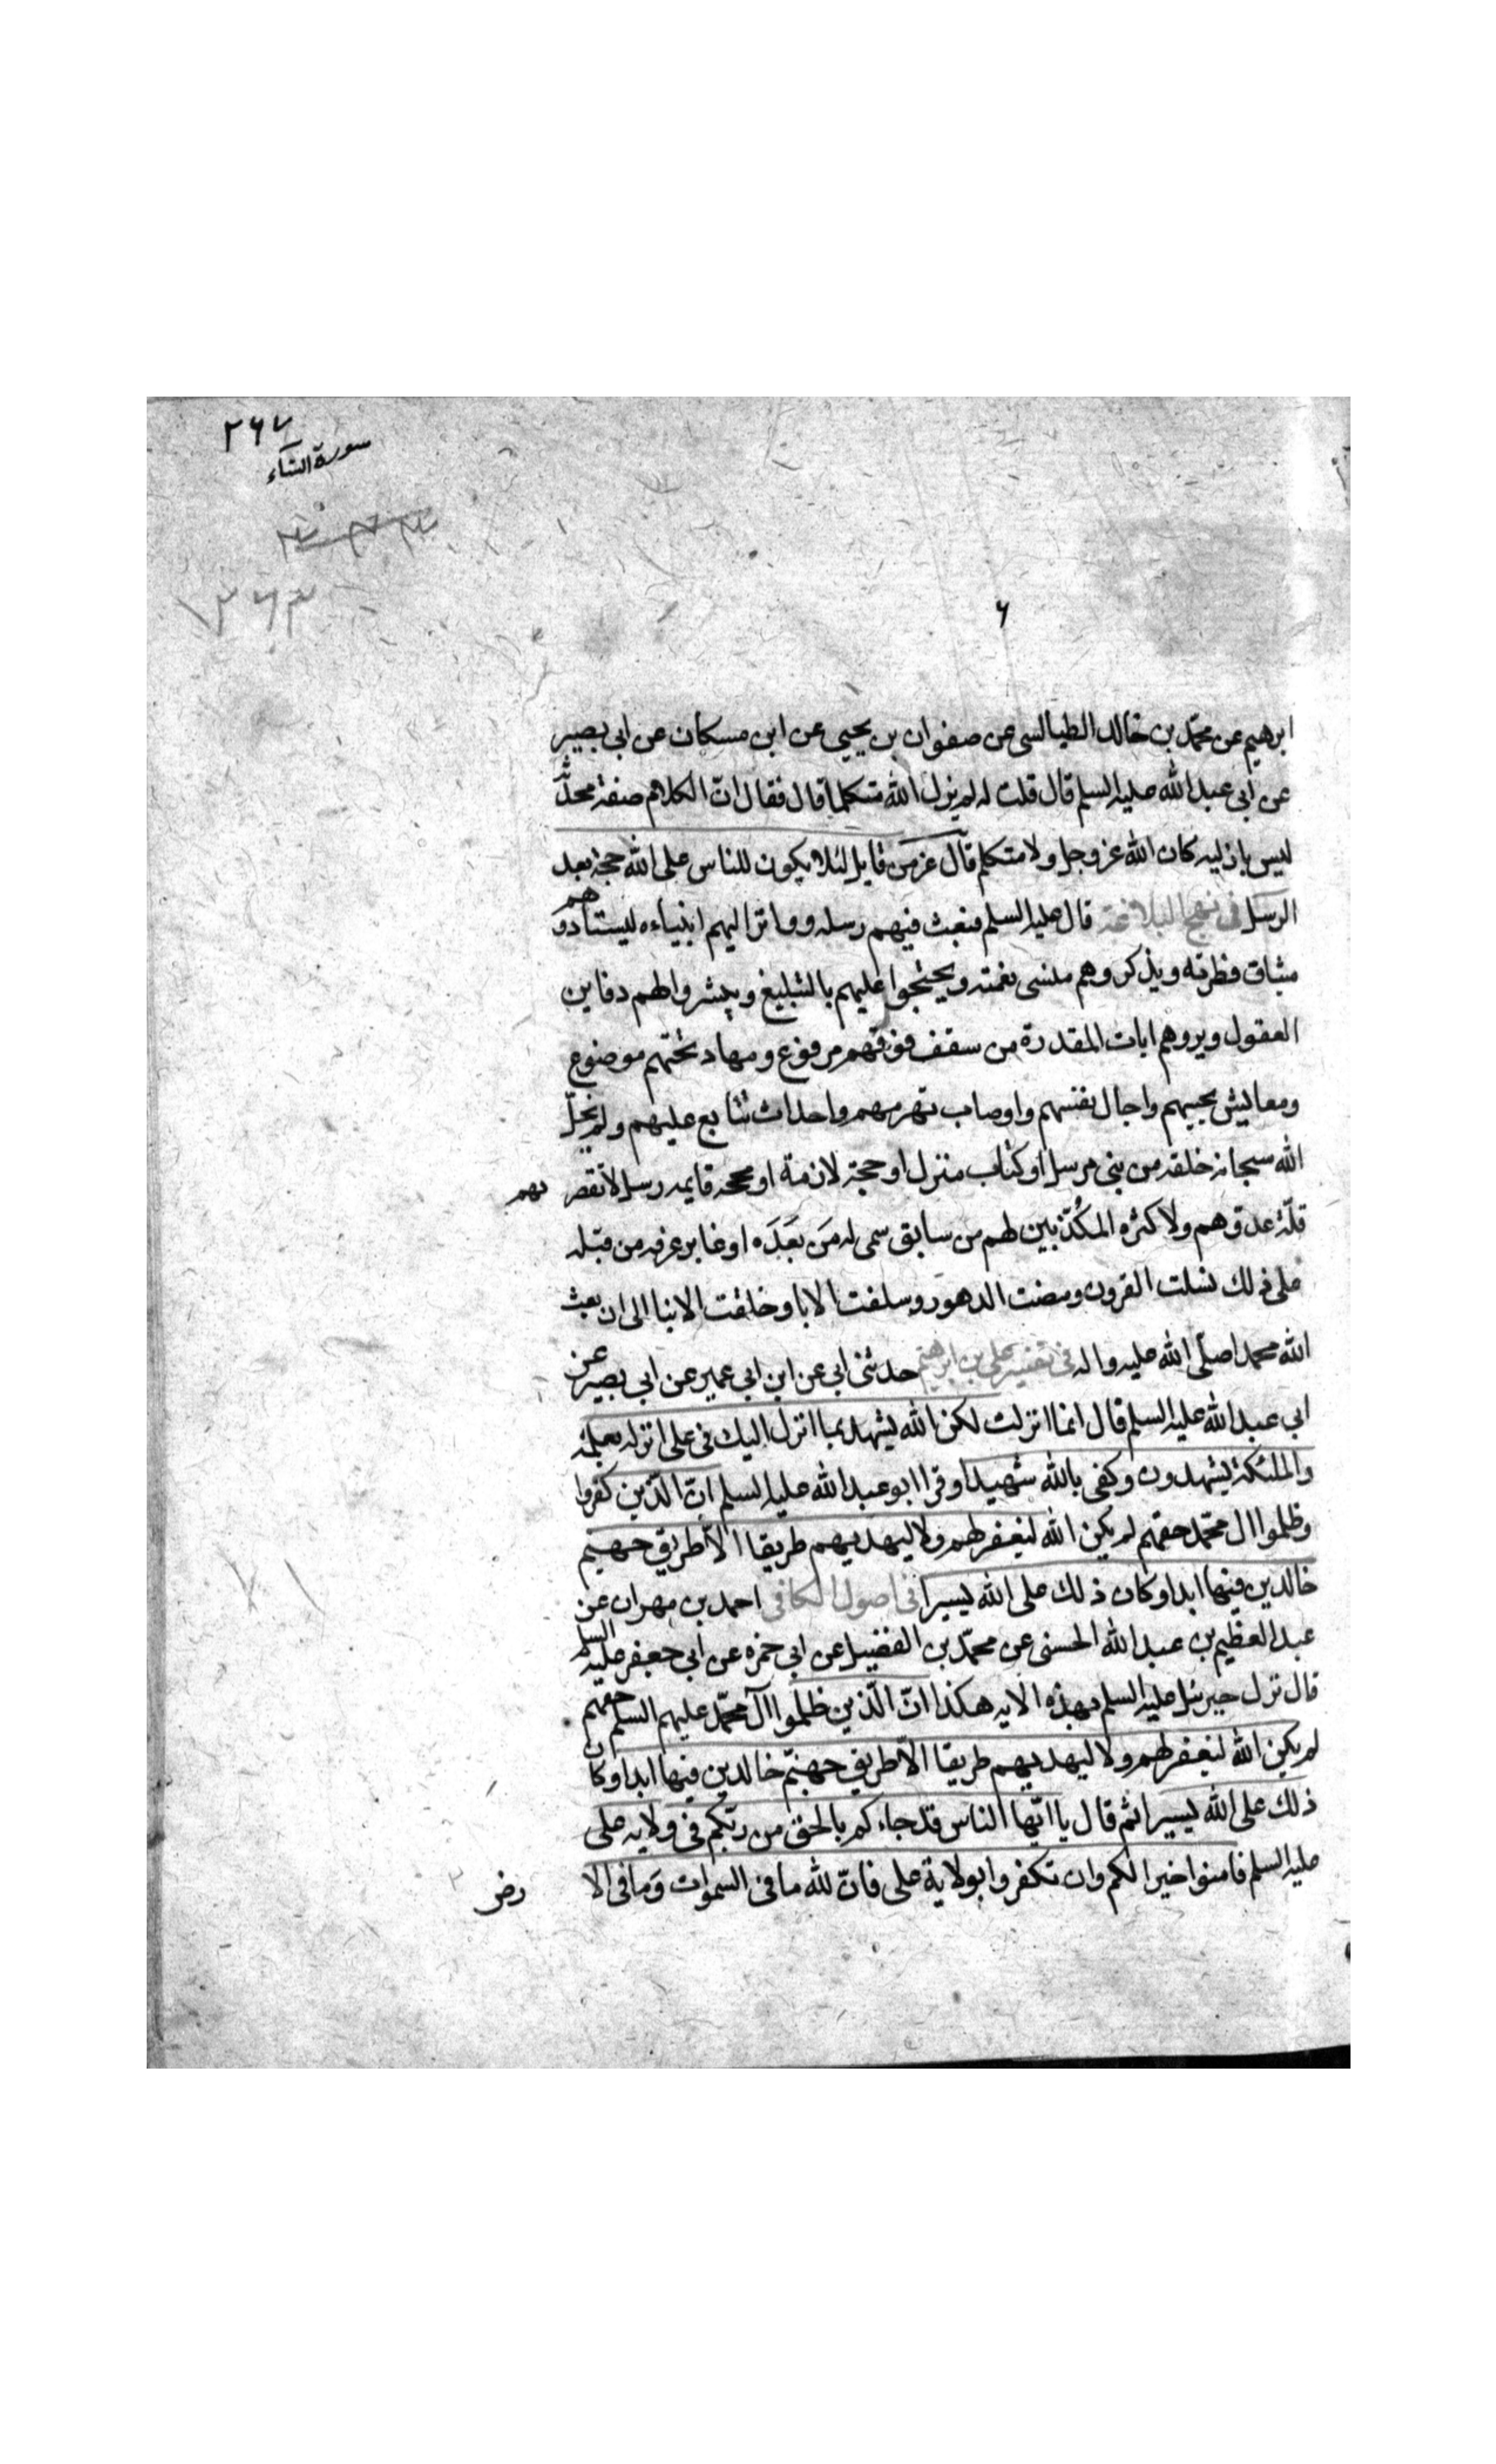 ٢٦٧
سورة النساء
١٢٦٣
٦
ابرهيم عن محمّد بن خالد الطيالسى عن صفوان بن يحيى عن ابن مسكان عن ابى بصير
عن ابى عبد الله عليه السلم قال قلت له لم يزل الله متكلما قال فقال انّ الكلام صفة محدثة
ليس بازليه كان الله عز وجل ولا متكلم قال عز من قايل لئلا يكون للناس على الله حجة بعد
الرسل فى نهج البلاغة قال عليه السلم فبعث فيهم رسله وواتر اليهم انبياءه ليستادوهم
ميثاق فطرته ويذكروهم منسى نعمته ويحتجوا عليهم بالتبليغ ويبشروا لهم دفاين
العقول ويروهم ايات المقدرة من سقف فوقهم مرفوع ومهاد تحتهم موضوع
ومعايش يحييهم واجال يفنيهم واوصاب تهرمهم واحداث تتابع عليهم ولم يخل
الله سبحانه خلقه من نبى مرسل او كتاب منزل او حجة لازمة او محجه قايمه رسل لا تقصر بهم
قلّة عدوّهم ولا كثره المكُذّبين لهم من سابق سمى له مَن بَعَدَه او غابر عرفه من قبله
على ذلك نسلت القرون ومضت الدهور وسلفت الابا وخلفت الابنا الى ان بعث
الله محمدا صلّى الله عليه واله فى تفسير على بن ابرهيم حدثنى ابى عن ابن ابى عمير عن ابى بصير عن
ابى عبد الله عليه السلم قال انما انزلت لكن الله يشهد بما انزل اليك فى على انزله بعلمه
والملئكة يشهدون وكفى بالله شهيدا وقرا ابو عبد الله عليه السلم انّ الّذين كفروا
وظلموا ال محمّد حقهم لم يكن الله ليغفر لهم ولا ليهديهم طريقا الاّ طريق جهنم
خالدين فيها ابدا وكان ذلك على الله يسيرا فى اصول الكافى احمد بن مهران عن
عبد العظيم بن عبد الله الحسنى عن محمّد بن الفضيل عن ابى حمزه عن ابى جعفر عليه السلم
قال نزل جبرئيل عليه السلم بهذه الايه هكذا انّ الّذين ظلموا آل محمّد عليهم السلم حقهم
لم يكن الله ليغفر لهم ولا ليهديهم طريقا الاّ طريق جهنّم خالدين فيها ابدا وكان
ذلك على الله يسيرا ثم قال يا ايّها الناس قد جاءكم بالحق من ربّكم فى ولايه على
عليه السلم فامنوا خيرا لكم وان تكفروا بولاية على فانّ لله ما فى السموات وَما فى الا
رض